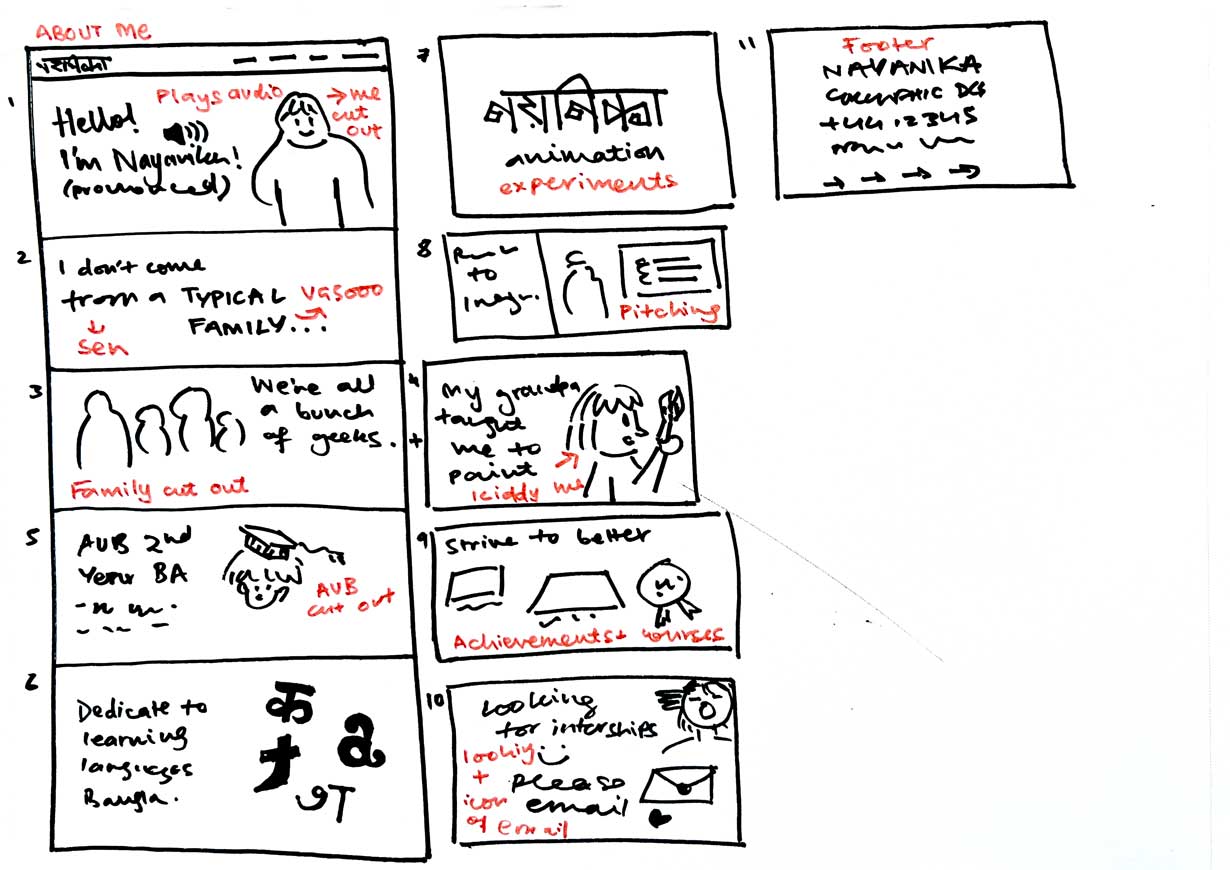 ABOUT ME
1
Plays audio
→ me
cut
out
Hello!
I'm Nayanika!
(pronounced)
2
I don't come
from a TYPICAL
FAMILY...
sen
3
We're all
a bunch
of geeks.
Family cut out
4
+
My grandpa
taught
me to
paint
kiddy me
5
AUB 2nd
Year BA
AUB
cut out
6
Dedicate to
learning
languages
Bangla.
क
a
7
animation
experiments
8
to
Pitching
9
Strive to better
Achievements + courses
10
Looking
for interships
looking
+
icon
of email
please
email
11
Footer
NAYANIKA
+44 12345
→ → → →